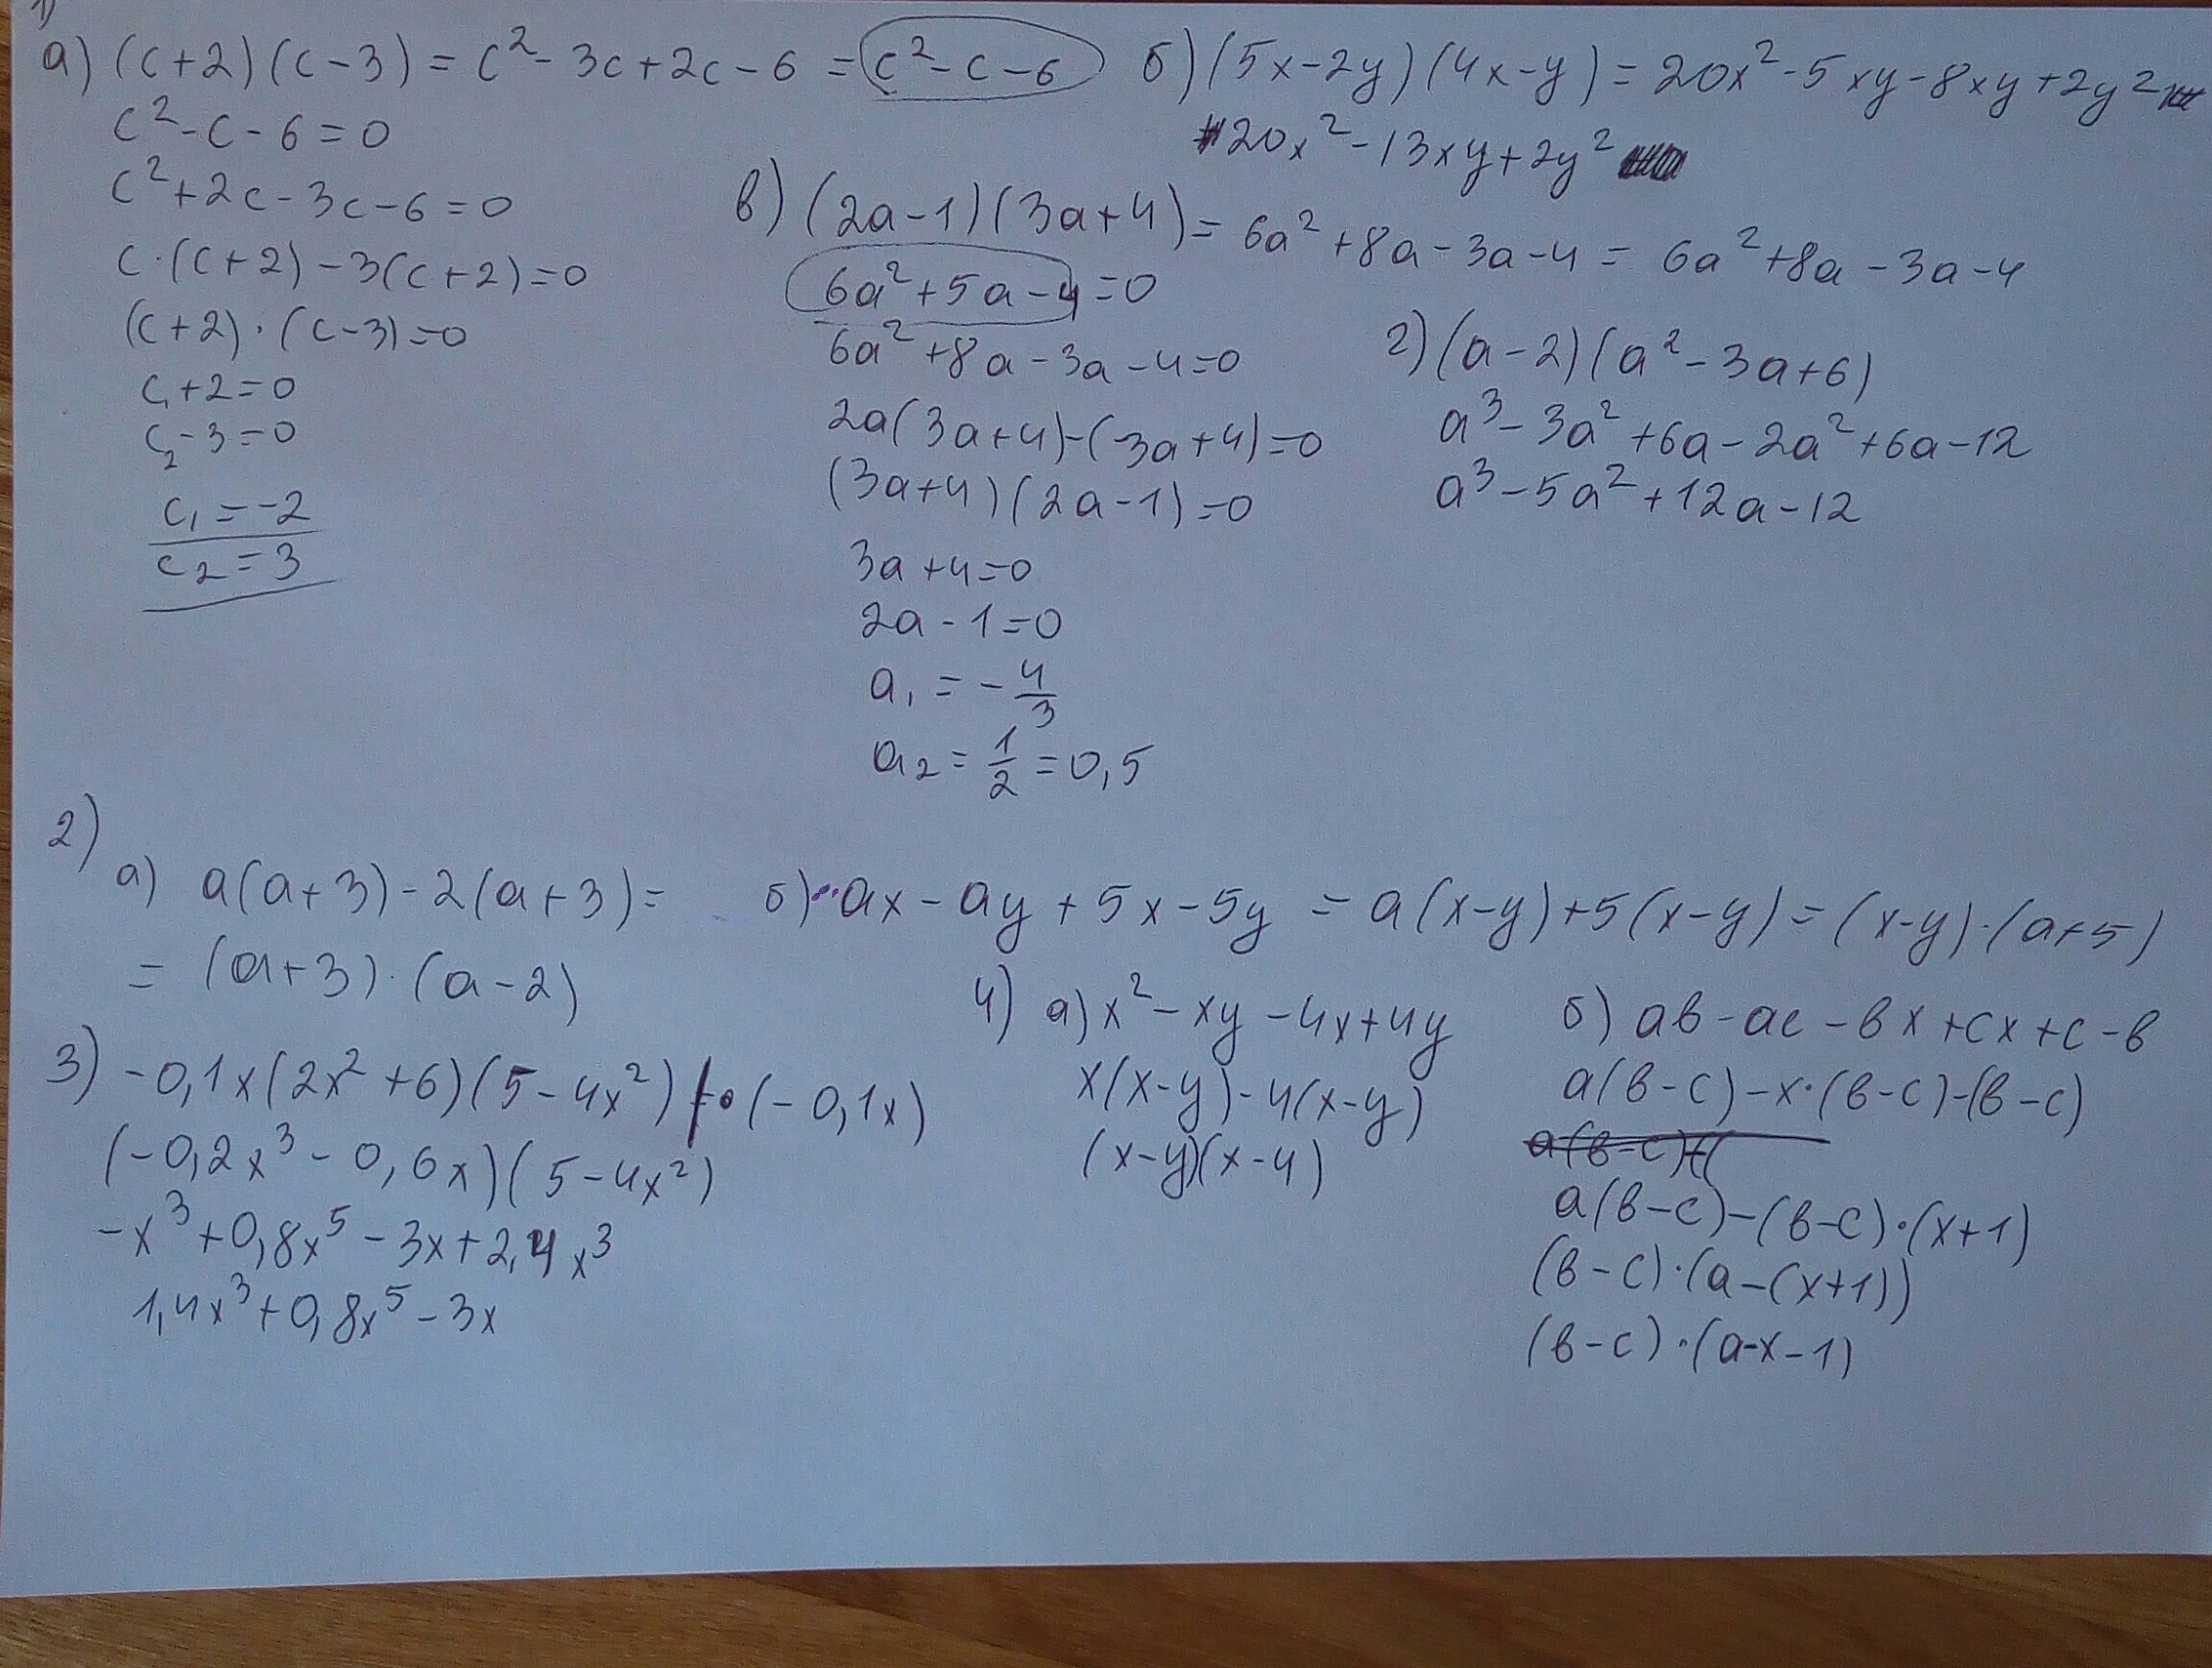 1)
а) (c+2)(c-3) = c²- 3c+2c-6 = c²-c-6
c²-c-6=0
c²+2c-3c-6=0
c·(c+2)-3(c+2)=0
(c+2)·(c-3)=0
c₁+2=0
c₂-3=0
c₁=-2
c₂=3
б) (5x-2y)(4x-y)=20x²-5xy-8xy+2y²
20x²-13xy+2y²
в) (2a-1)(3a+4)= 6a²+8a-3a-4= 6a²+8a-3a-4
6a²+5a-4=0
6a²+8a-3a-4=0
2a(3a+4)-(3a+4)=0
(3a+4)(2a-1)=0
3a+4=0
2a-1=0
a₁=-4/3
a₂=1/2=0,5
г) (a-2)(a²-3a+6)
a³-3a²+6a-2a²+6a-12
a³-5a²+12a-12
2)
а) a(a+3)-2(a+3)=
= (a+3)·(a-2)
б) ax-ay+5x-5y = a(x-y)+5(x-y)=(x-y)·(a+5)
3) -0,1x(2x²+6)(5-4x²) ·(-0,1x)
(-0,2x³-0,6x)(5-4x²)
-x³+0,8x⁵-3x+2,4x³
1,4x³+0,8x⁵-3x
4) а) x²-xy-4x+4y
x(x-y)-4(x-y)
(x-y)(x-4)
б) ав-ac-вx+cx+c-в
a(в-c)-x·(в-c)-(в-c)
a(в-c)+(
a(в-c)-(в-c)·(x+1)
(в-c)·(a-(x+1))
(в-c)·(a-x-1)